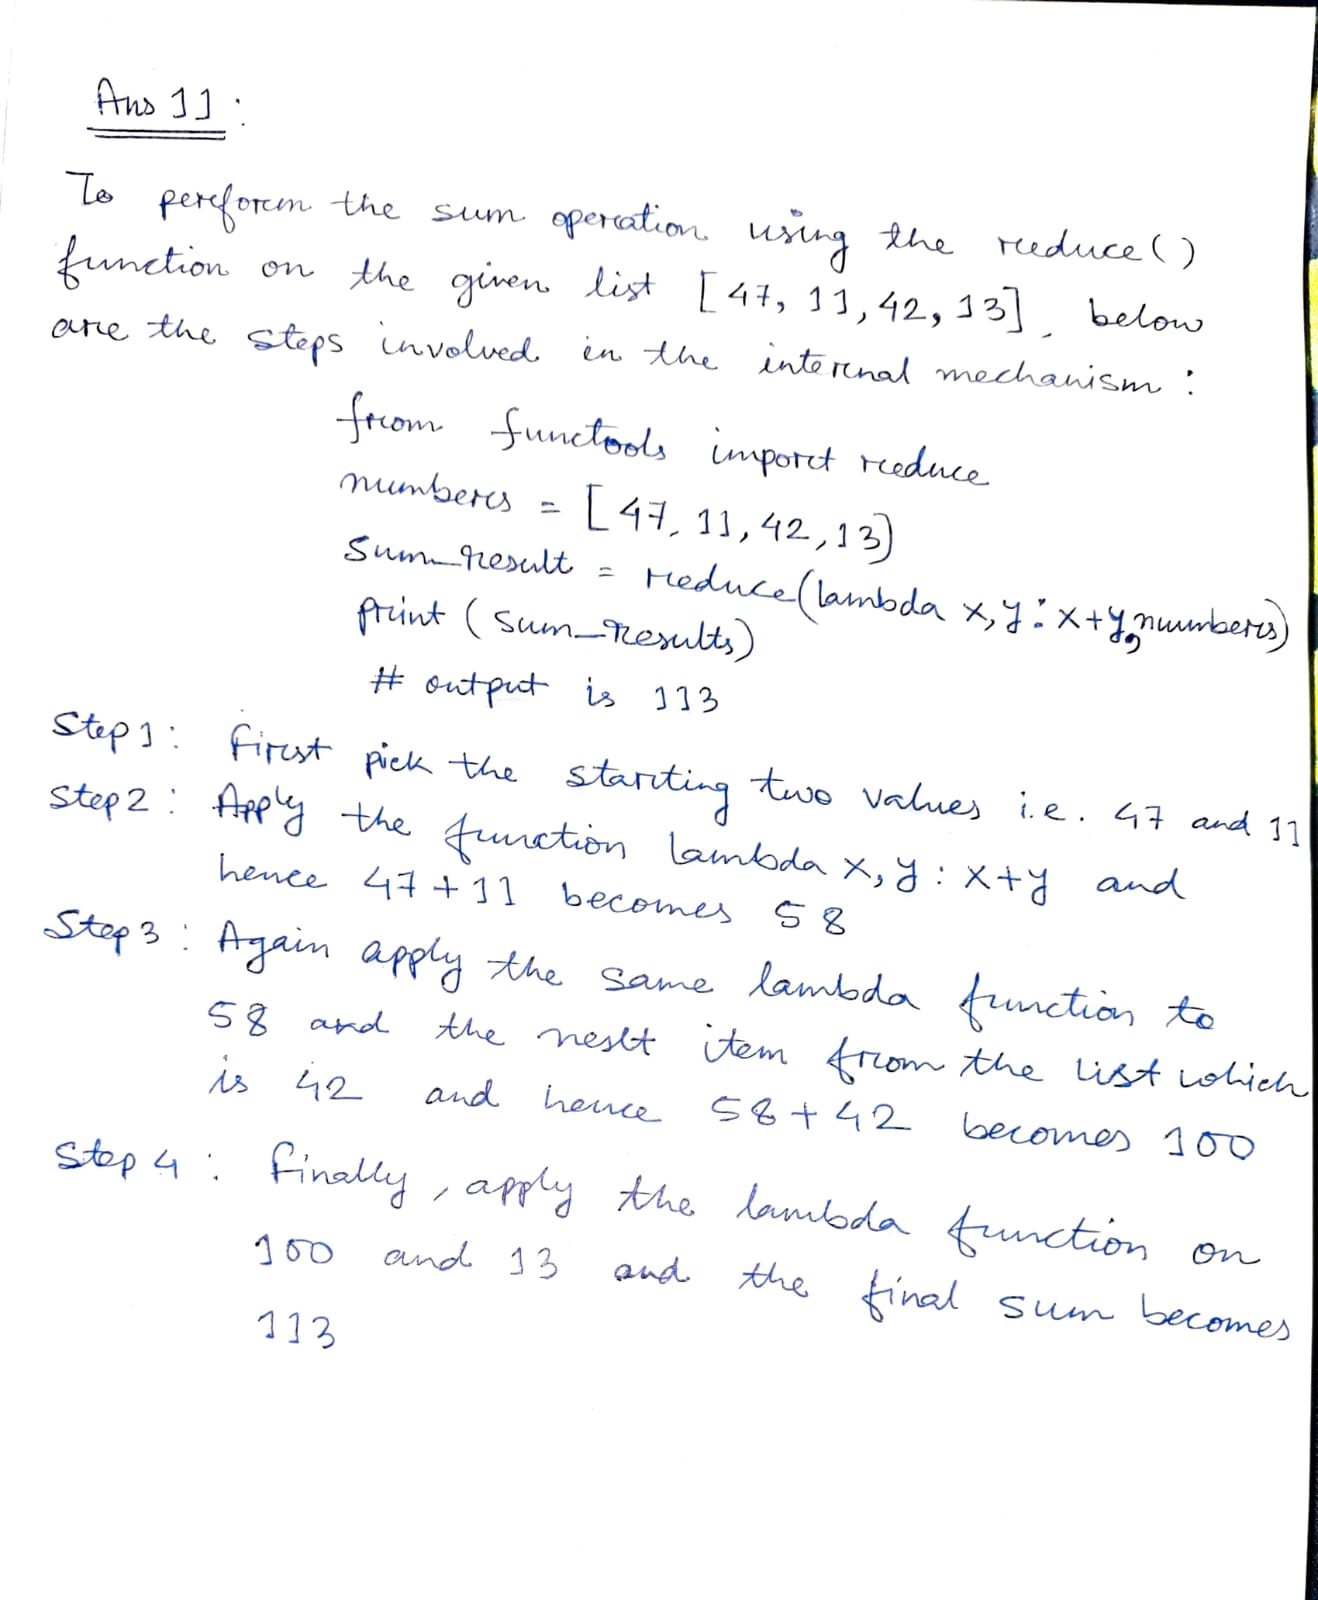 Ans 11 :
To perform the sum operation using the reduce()
function on the given list [47, 11, 42, 13], below
are the steps involved in the internal mechanism :
from functools import reduce
numbers = [47, 11, 42, 13)
sum_result = reduce(lambda x, y : x+y, numbers)
print (sum_results)
# output is 113
Step 1 : First pick the starting two values i.e. 47 and 11
Step 2 : Apply the function lambda x, y : x+y and
hence 47 + 11 becomes 58
Step 3 : Again apply the same lambda function to
58 and the next item from the list which
is 42 and hence 58 + 42 becomes 100
Step 4 : Finally, apply the lambda function on
100 and 13 and the final sum becomes
113